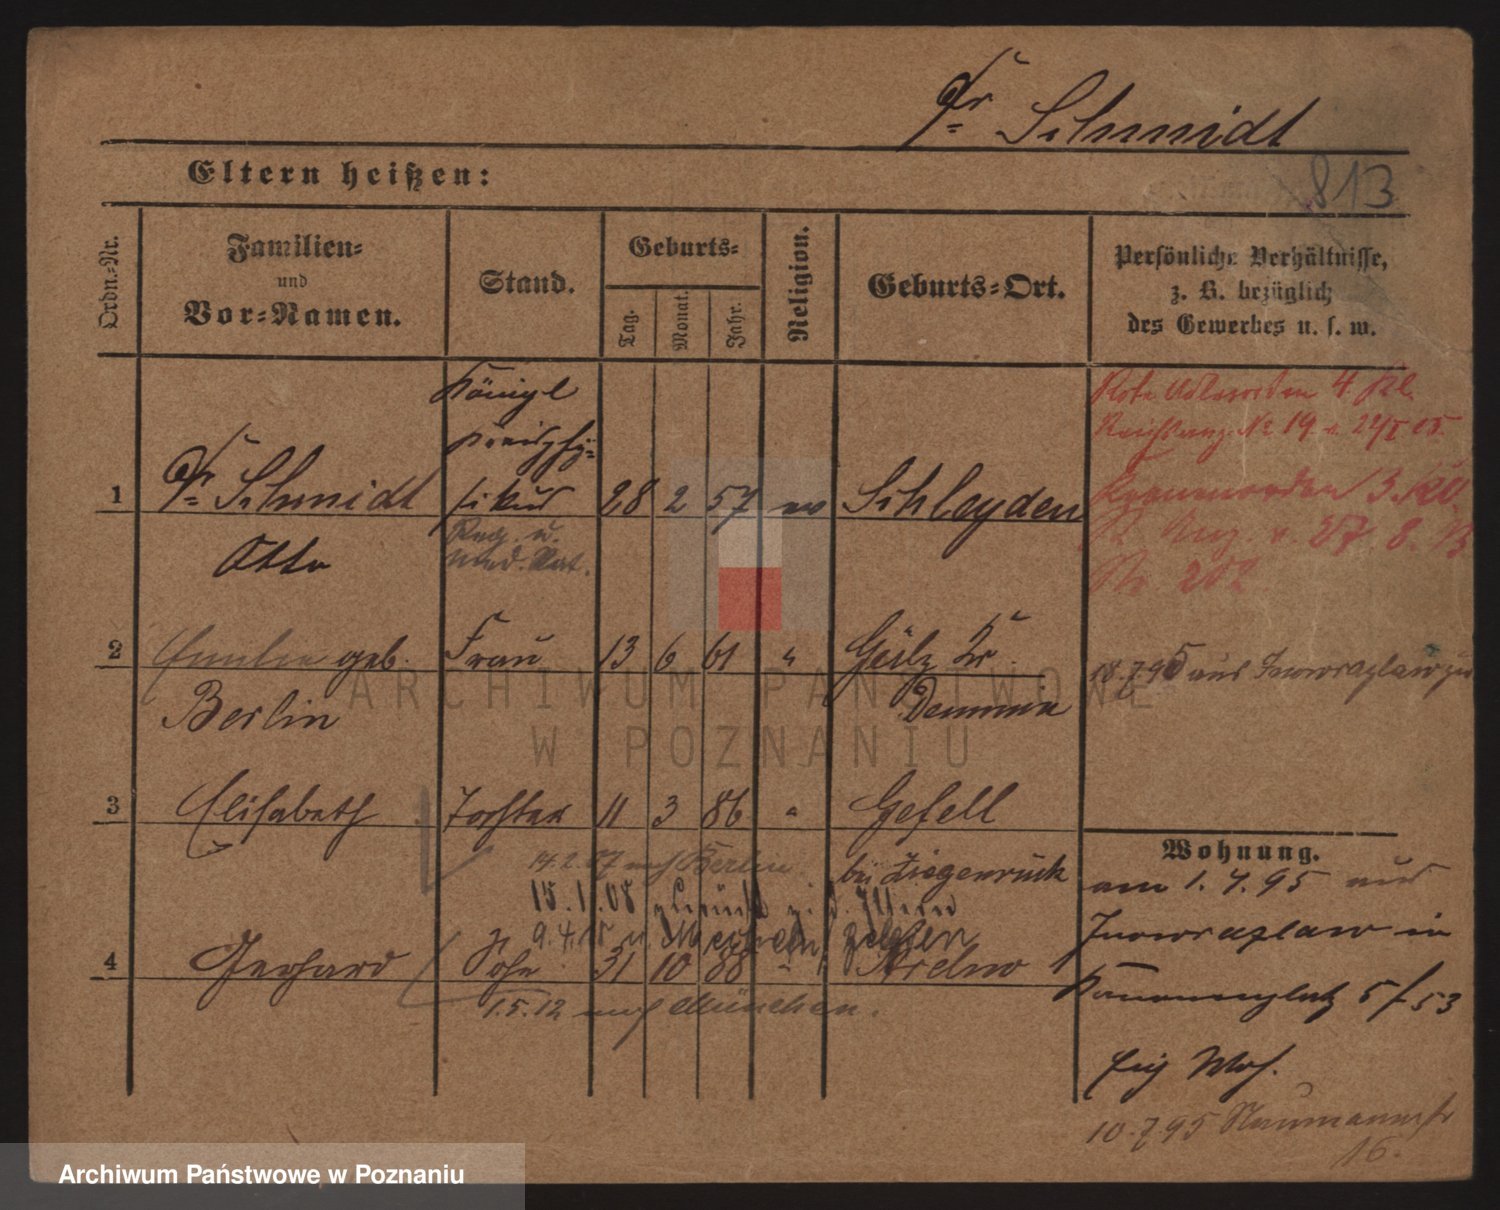 Dr Schmidt
Eltern heißen:
813
Ordn.-Nr.
Familien-
und
Vor-Namen.
Stand.
Geburts-
Tag.
Monat.
Jahr.
Religion.
Geburts-Ort.
Persönliche Verhältnisse,
z. B. bezüglich
des Gewerbes u. s. w.
Königl
Kreisphy-
1 Dr Schmidt sikus 28 2 57 ev Schleyden
Otto
Reg. u.
med. Rat.
Rote Adlerorden 4. Kl.
Reichsanz. No 19 v. 22/I 05.
Kronenorden 3. Kl.
R. Anz. v. 27. 8. 13
Nr. 202
2 Emilie geb. Frau 13 6 61 " Gülz Kr.
Berlin Demmin
18.7.95 aus Inowrazlaw zu
3 Elisabeth Tochter 11 3 86 " Gefell
bei Ziegenrück
14.2.07 nach Berlin
15.1.08 zurück z. d. Eltern
9.4.
4 Gerhard Sohn 31 10 88 " Strelno
1.5.12 nach München.
Wohnung.
am 1.4.95 aus
Inowrazlaw in
5/53
10.7.95 Naumannstr
16.
ARCHIWUM PAŃSTWOWE
W POZNANIU
Archiwum Państwowe w Poznaniu